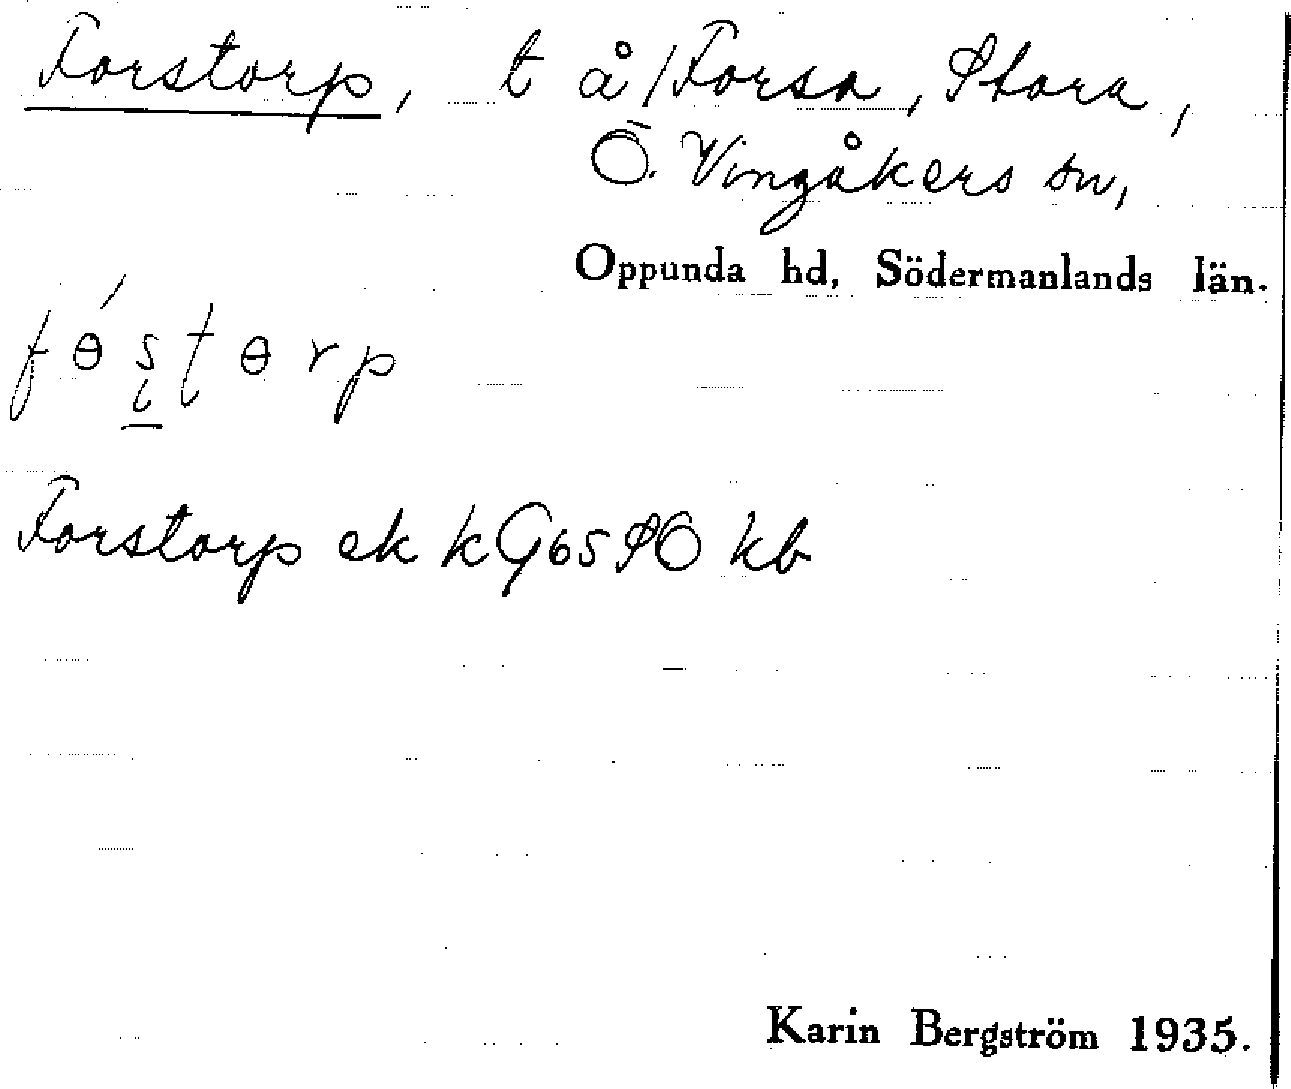 Forstorp, t å/Forsa, Stora,
Ö. Vingåkers sn,
Oppunda hd, Södermanlands län.
fɵ́stɵrp
Forstorp ek kG65SÖ kb
Karin Bergström 1935.